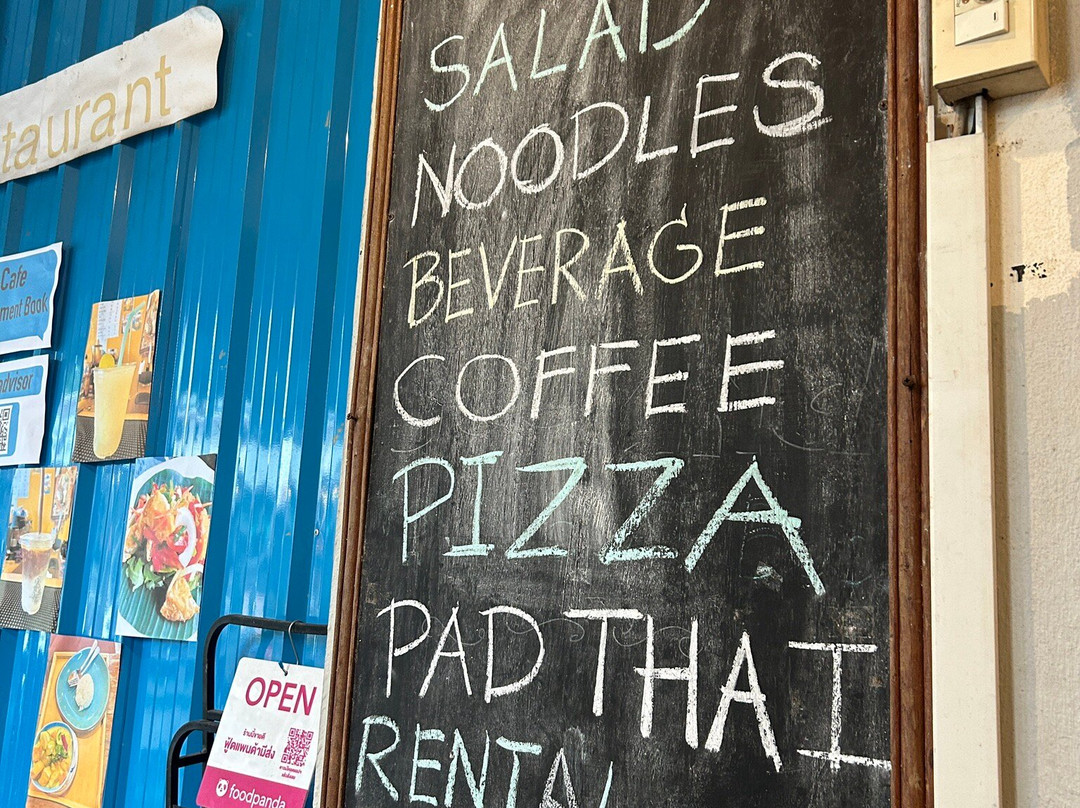 taurant
Cafe
ment Book
dvisor
SALAD
NOODLES
BEVERAGE
COFFEE
PIZZA
PAD THAI
RENTAL
OPEN
ร้านนี้ขายดี
ฟู้ดแพนด้ามีส่ง
foodpanda